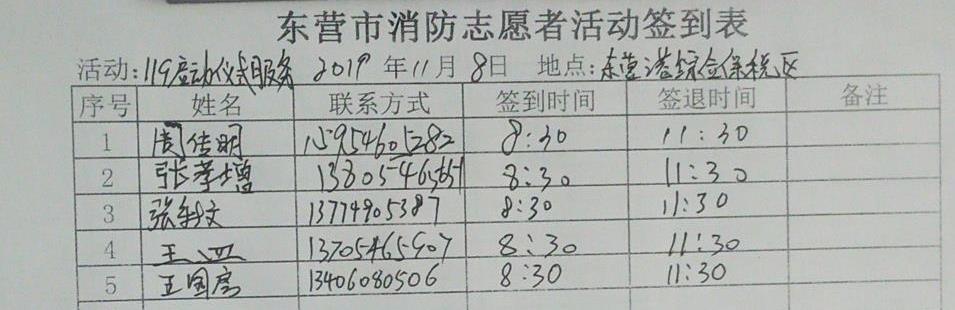 东营市消防志愿者活动签到表
活动:119启动仪式服务 2019年11月8日 地点:东营港综合保税区
序号 姓名 联系方式 签到时间 签退时间 备注
1 周传明 15954605282 8:30 11:30
2 张孝增 13805465651 8:30 11:30
3 张 文 13774905387 8:30 11:30
4 王 13705465907 8:30 11:30
5 王国房 13406080506 8:30 11:30